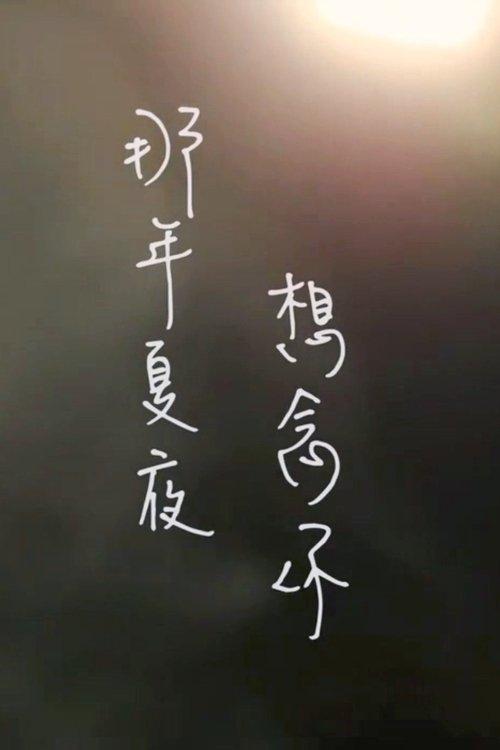 那年夏夜
想念你